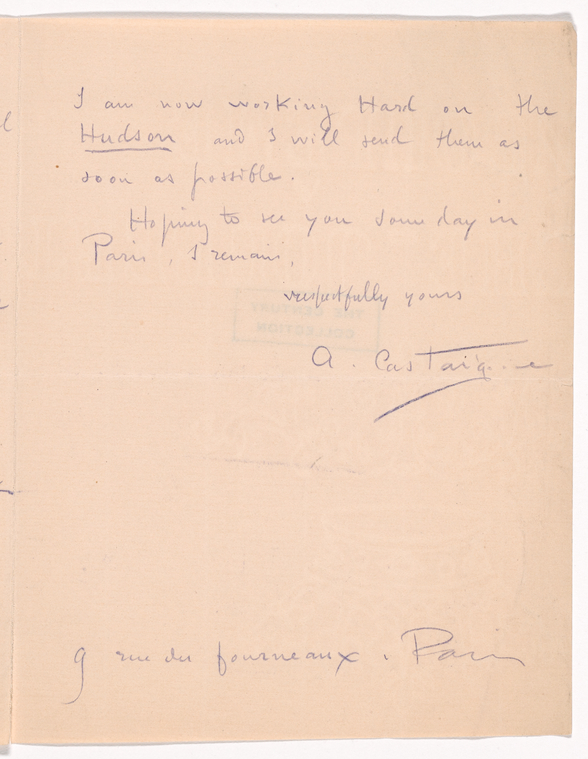 I am now working Hard on the
Hudson and I will send them as
soon as possible.
Hoping to see you some day in
Paris, I remain,
respectfully yours
A. Castaigne
9 rue du fourneaux. Paris